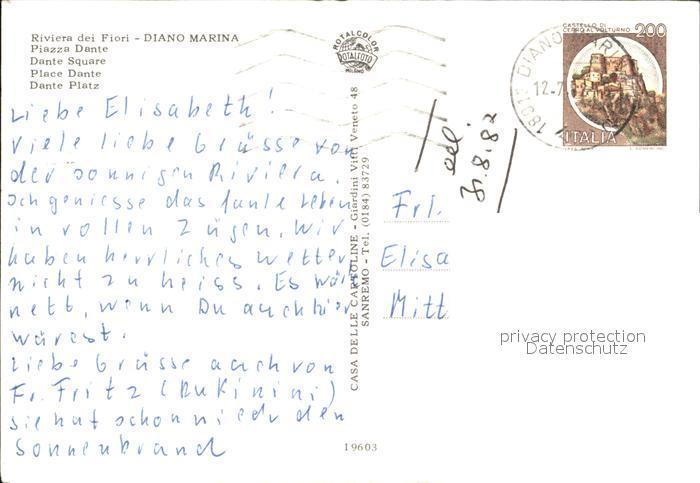 Riviera dei Fiori - DIANO MARINA
Piazza Dante
Dante Square
Place Dante
Dante Platz
ROTALCOLOR
ROTALFOTO
MILANO
CASTELLO DI
CERRO AL VOLTURNO
200
ITALIA
18013 DIANO MARI
12-7
Liebe Elisabeth!
Viele liebe Grüsse von
der sonnigen Riviera.
Ich geniesse das faule Leben
in vollen Zügen. Wir
haben herrliches Wetter
nicht zu heiss. Es wär
nett, wenn Du auch hier
wärest.
Liebe Grüsse auch von
Fr. Fritz (Rukinini)
sie hat schon wieder den
Sonnenbrand
CASA DELLE CARTOLINE - Giardini Vitt. Veneto 48
SANREMO - Tel. (0184) 83729
31.8.82
Frl.
Elisa
Mitt
privacy protection
Datenschutz
19603